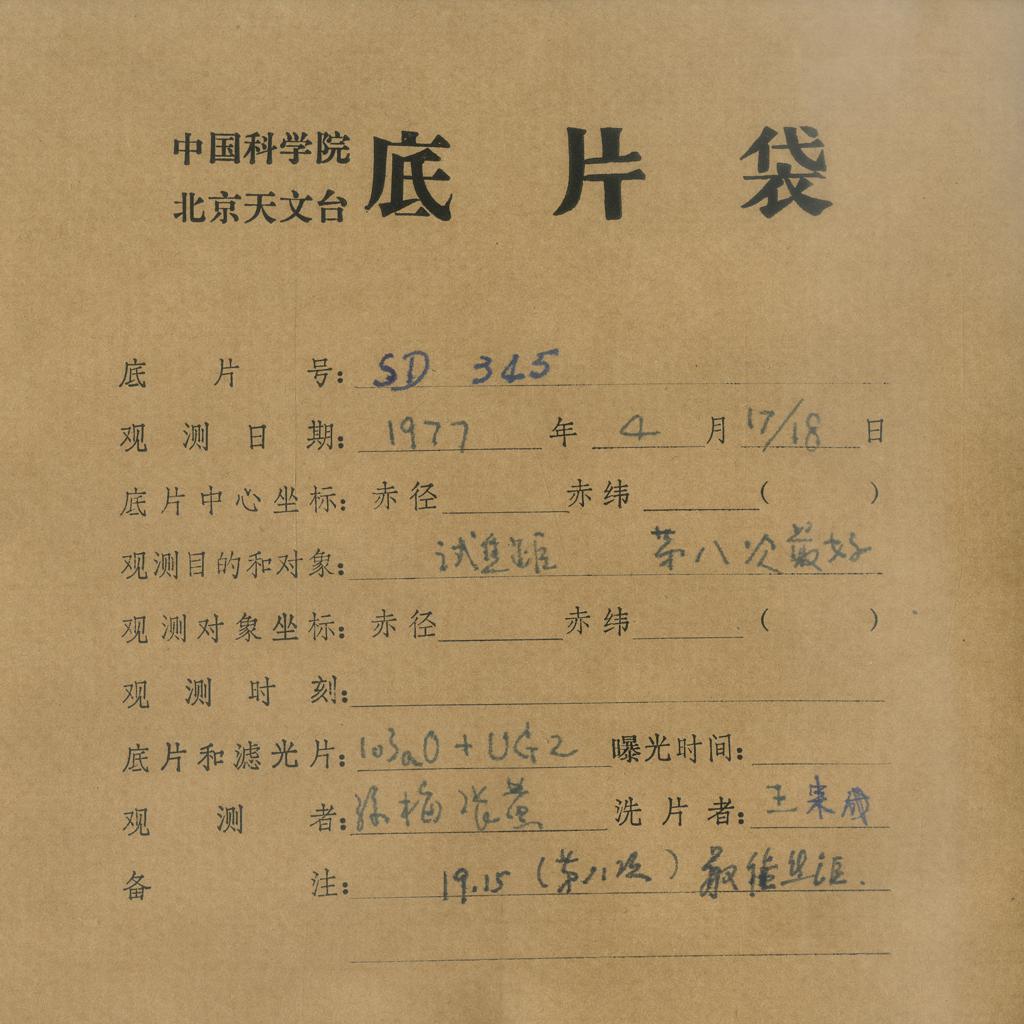 中国科学院
北京天文台
底片袋
底片号: SD 345
观测日期: 1977 年 4 月 17/18 日
底片中心坐标: 赤径 赤纬 ( )
观测目的和对象: 试焦距 第八次最好
观测对象坐标: 赤径 赤纬 ( )
观测时刻:
底片和滤光片: 103aO + UG2 曝光时间:
观测者: 梅 张 黄 洗片者: 王
备注: 19.15 (第八次) 最佳焦距.